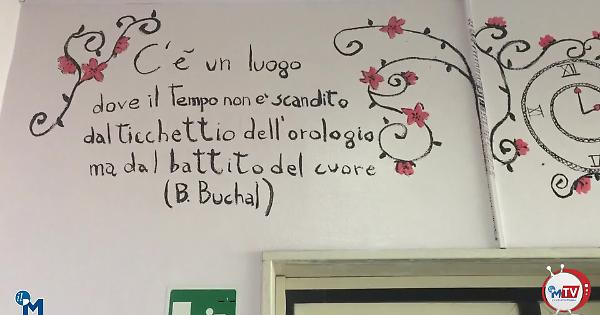 C'è un luogo
dove il Tempo non e' scandito
dal ticchettio dell'orologio
ma dal battito del cuore
(B. Buchal)
XII
il M
MTV